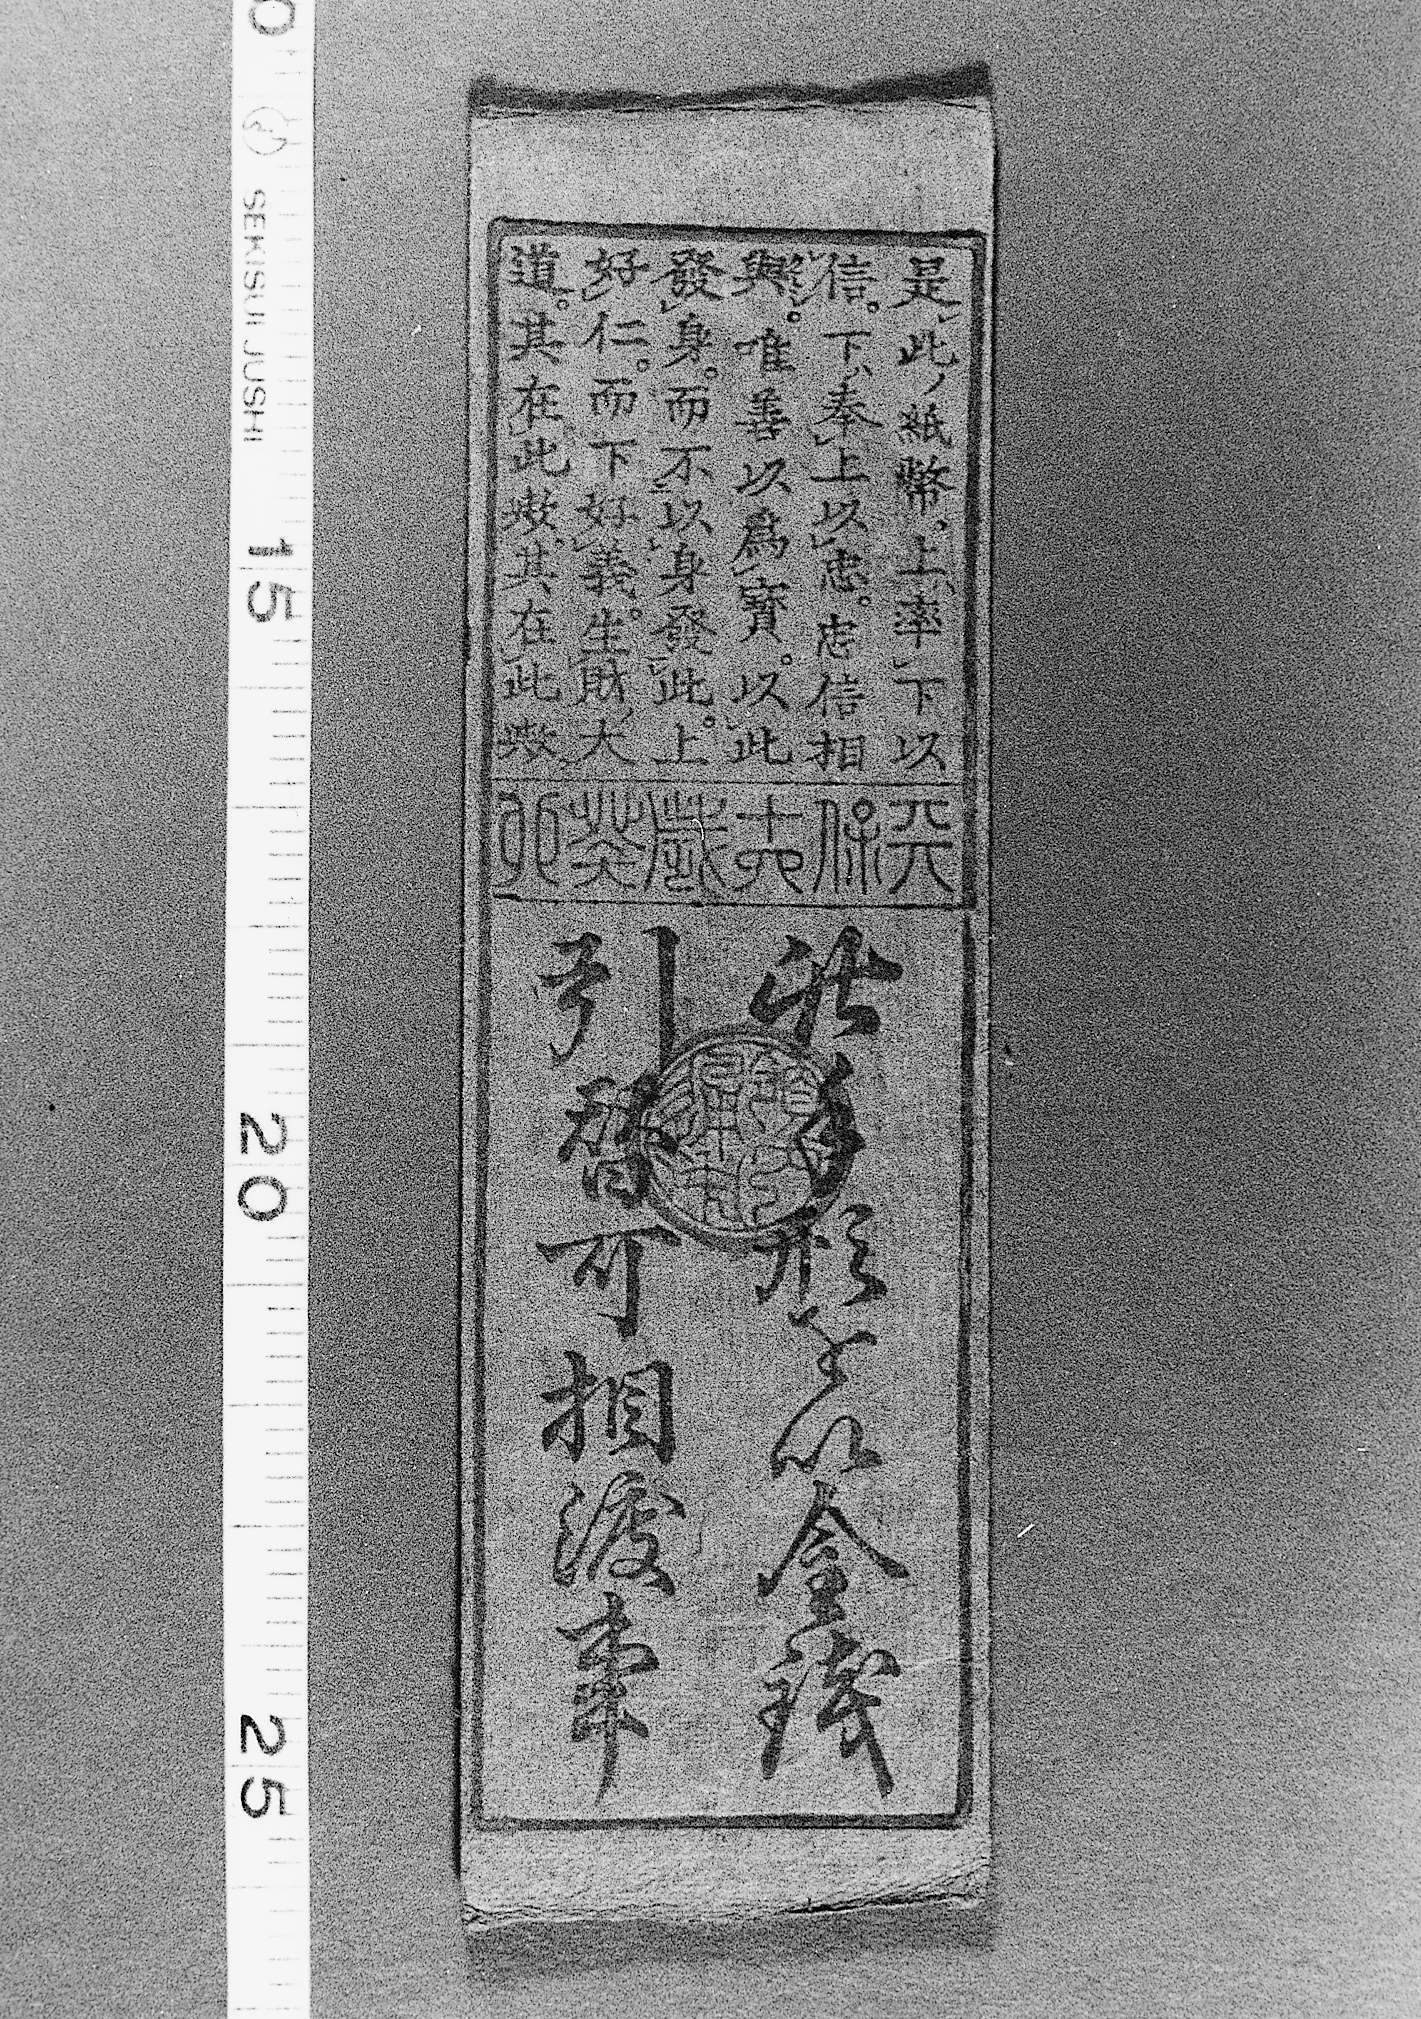 是此ノ紙幣、上率下以
信。下奉上以忠。忠信相
與。唯善以爲寶。以此
發身。而不以身發此。上
好仁。而下好義。生財大
道。其在此歟。其在此歟。
天保十四歳癸卯
此手形を以金銭
引替可相渡事
SEKISUI JUSHI
15
20
25